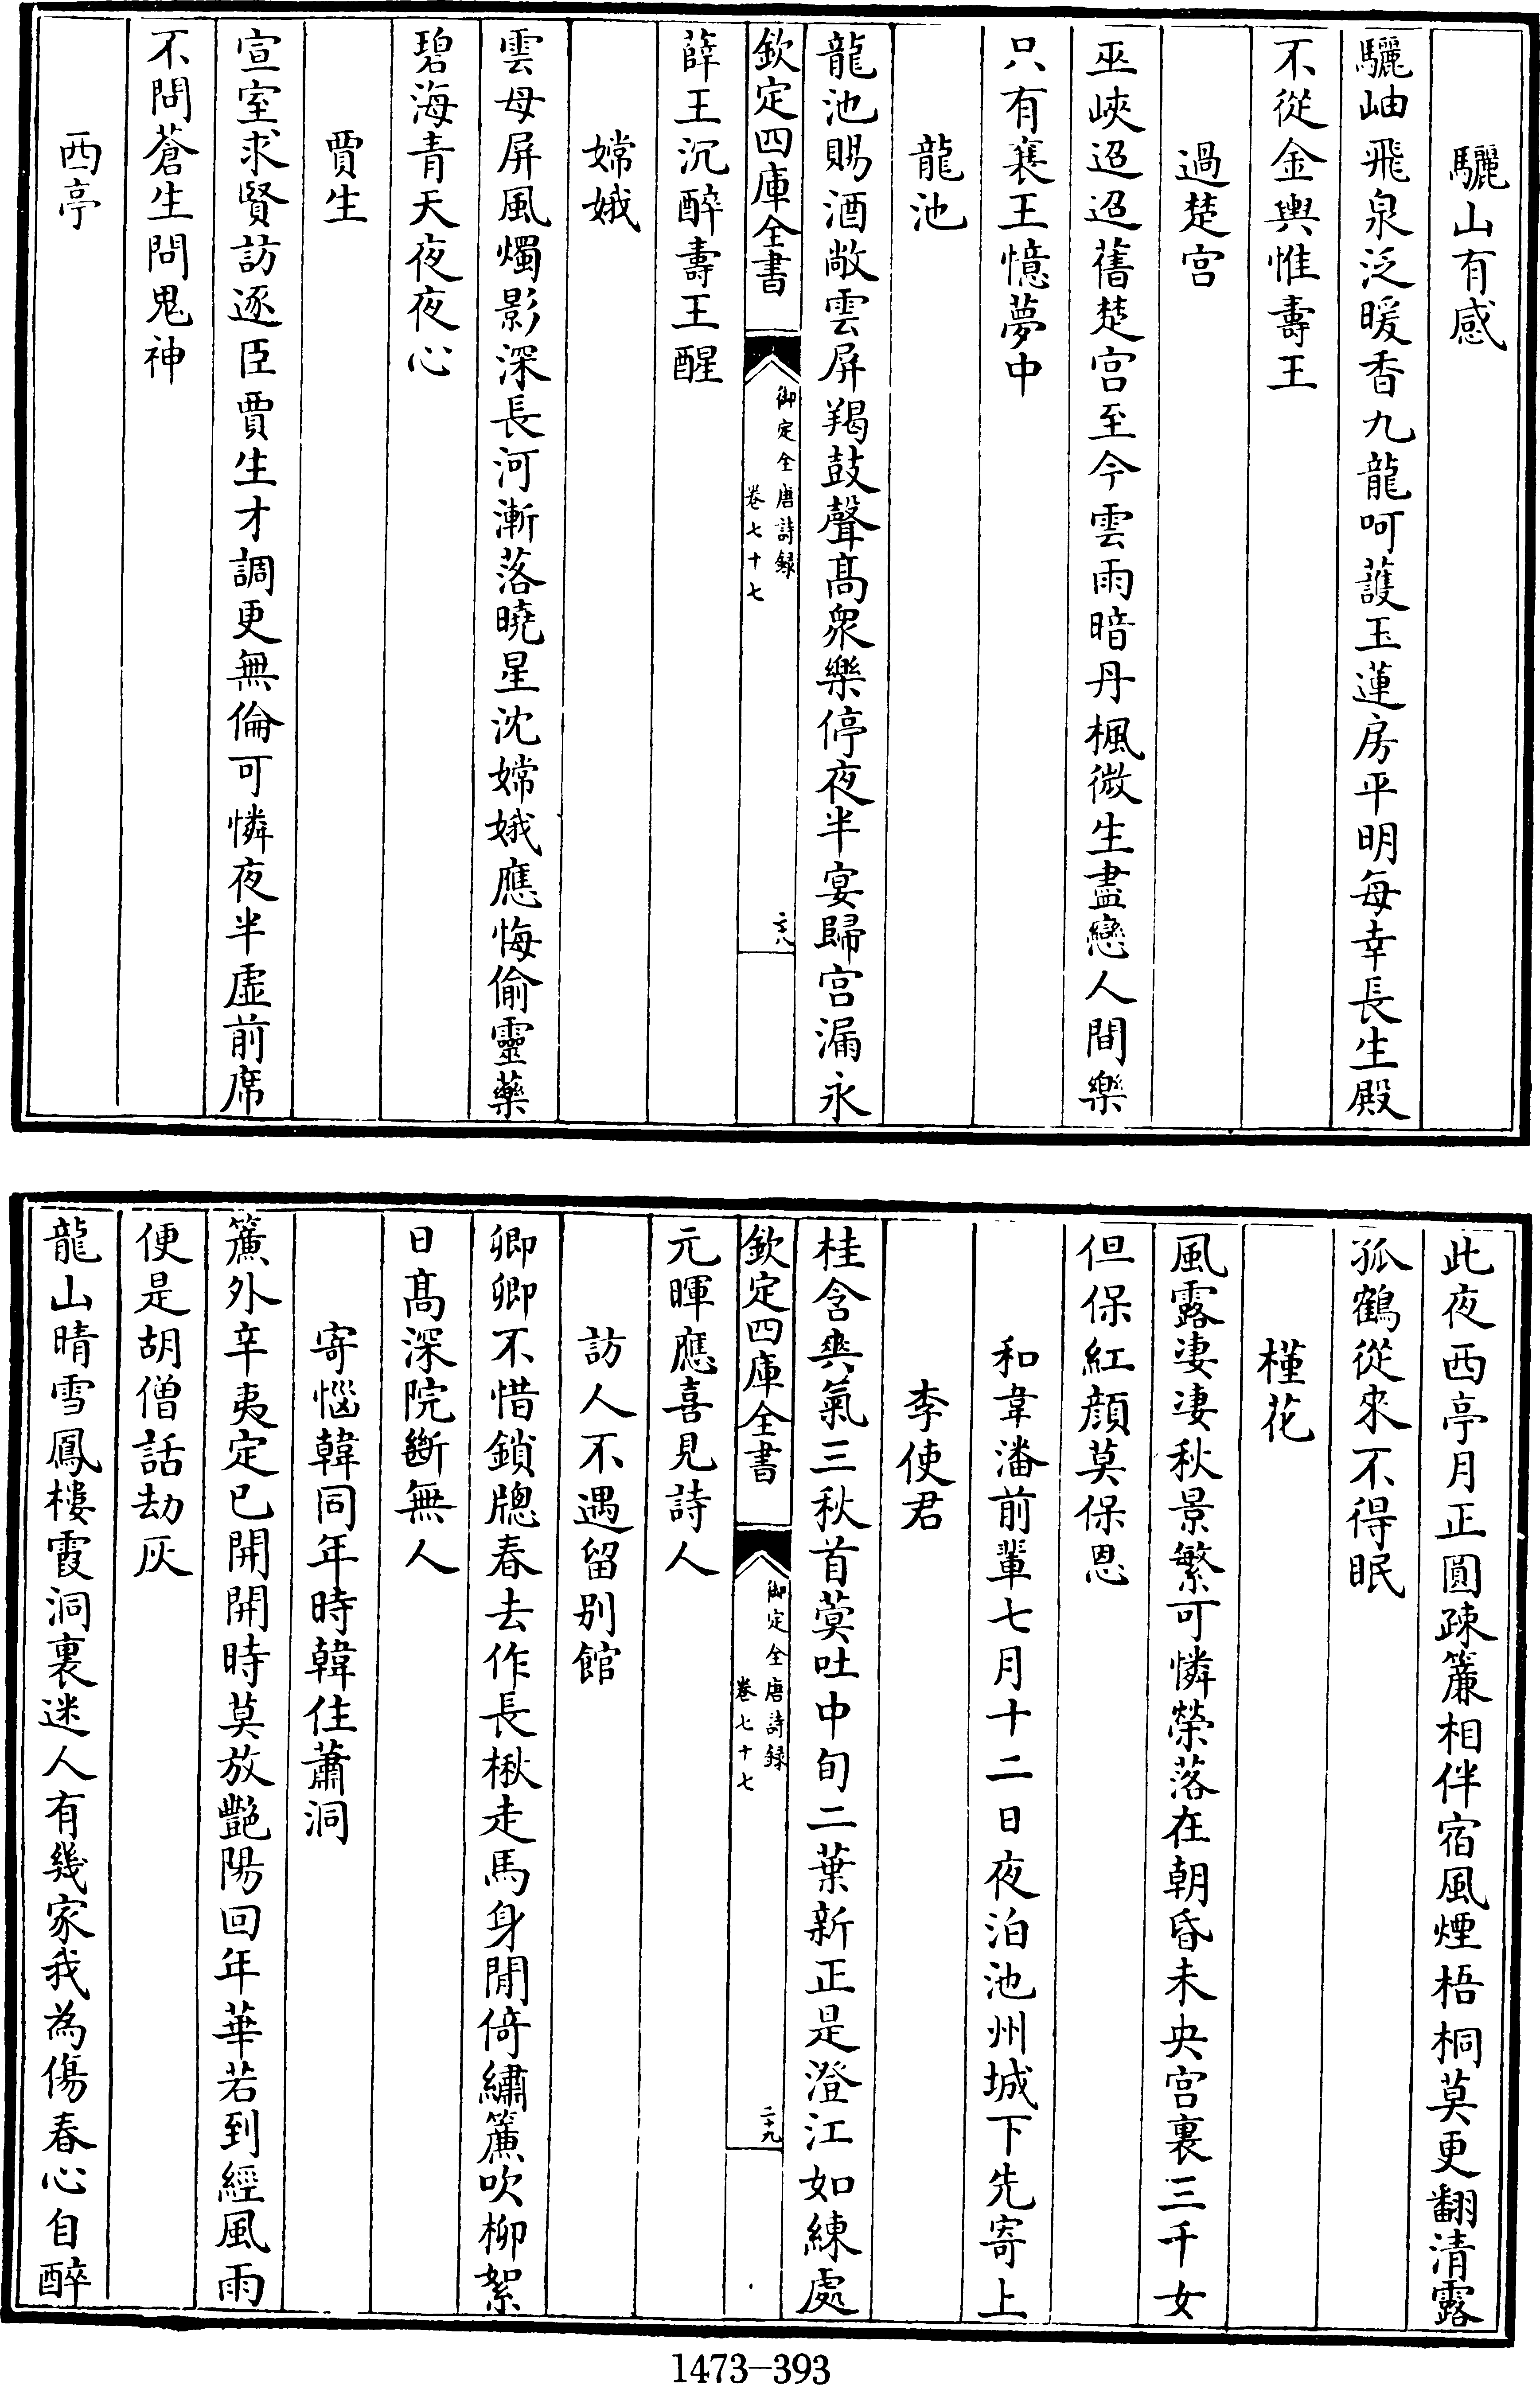 驪山有感
驪岫飛泉泛暖香九龍呵䕶玉蓮房平明每幸長生殿
不從金輿惟夀王
過楚宫
巫峽迢迢舊楚宫至今雲雨暗丹楓微生盡戀人間樂
只有襄王憶夢中
龍池
龍池賜酒敞雲屏羯鼓聲髙衆樂停夜半宴歸宫漏永
欽定四庫全書
御定全唐詩録
卷七十七
二十八
薛王沉醉夀王醒
嫦娥
雲母屏風燭影深長河漸落曉星沈嫦娥應悔偷靈藥
碧海青天夜夜心
賈生
宣室求賢訪逐臣賈生才調更無倫可憐夜半虛前席
不問蒼生問鬼神
西亭
此夜西亭月正圓疎簾相伴宿風煙梧桐莫更翻清露
孤鶴從來不得眠
槿花
風露凄凄秋景繁可憐榮落在朝昏未央宫裏三千女
但保紅顔莫保恩
和韋潘前輩七月十二日夜泊池州城下先寄上
李使君
桂含爽氣三秋首蓂吐中旬二葉新正是澄江如練處
欽定四庫全書
御定全唐詩録
卷七十七
二十九
元暉應喜見詩人
訪人不遇留别館
卿卿不惜鎖牕春去作長楸走馬身閒倚繡簾吹柳絮
日髙深院斷無人
寄惱韓同年時韓住蕭洞
簾外辛夷定已開開時莫放艷陽回年華若到經風雨
便是胡僧話劫灰
龍山晴雪鳳樓霞洞裏迷人有幾家我為傷春心自醉
1473-393